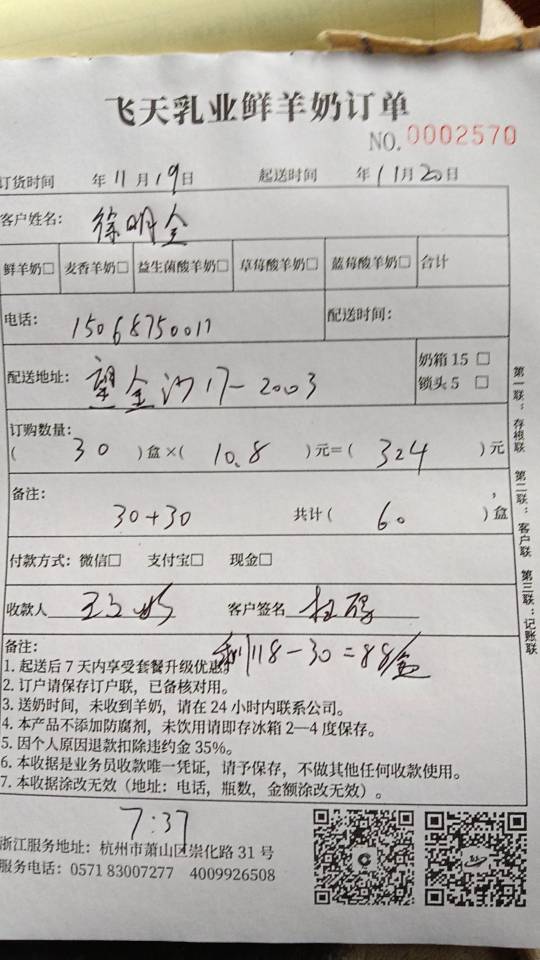 飞天乳业鲜羊奶订单
NO.0002570
订货时间 年11月19日 起送时间 年11月20日
客户姓名: 徐明全
鲜羊奶□ 麦香羊奶□ 益生菌酸羊奶□ 草莓酸羊奶□ 蓝莓酸羊奶□ 合计
电话: 15068750017 配送时间:
配送地址: 望金沙17-2003
奶箱15 □
锁头5 □
订购数量:
( 30 )盒×( 10.8 )元=( 324 )元
备注:
30+30 共计( 60 )盒
付款方式: 微信□ 支付宝□ 现金□
收款人 客户签名
备注:
118-30=88盒
1. 起送后7天内享受套餐升级优惠
2. 订户请保存订户联，已备核对用。
3. 送奶时间，未收到羊奶，请在24小时内联系公司。
4. 本产品不添加防腐剂，未饮用请即存冰箱2—4度保存。
5. 因个人原因退款扣除违约金35%。
6. 本收据是业务员收款唯一凭证，请予保存，不做其他任何收款使用。
7. 本收据涂改无效（地址: 电话，瓶数，金额涂改无效）。
7:37
浙江服务地址: 杭州市萧山区崇化路31号
服务电话: 0571 83007277 4009926508
第一联: 存根联 第二联: 客户联 第三联: 记账联